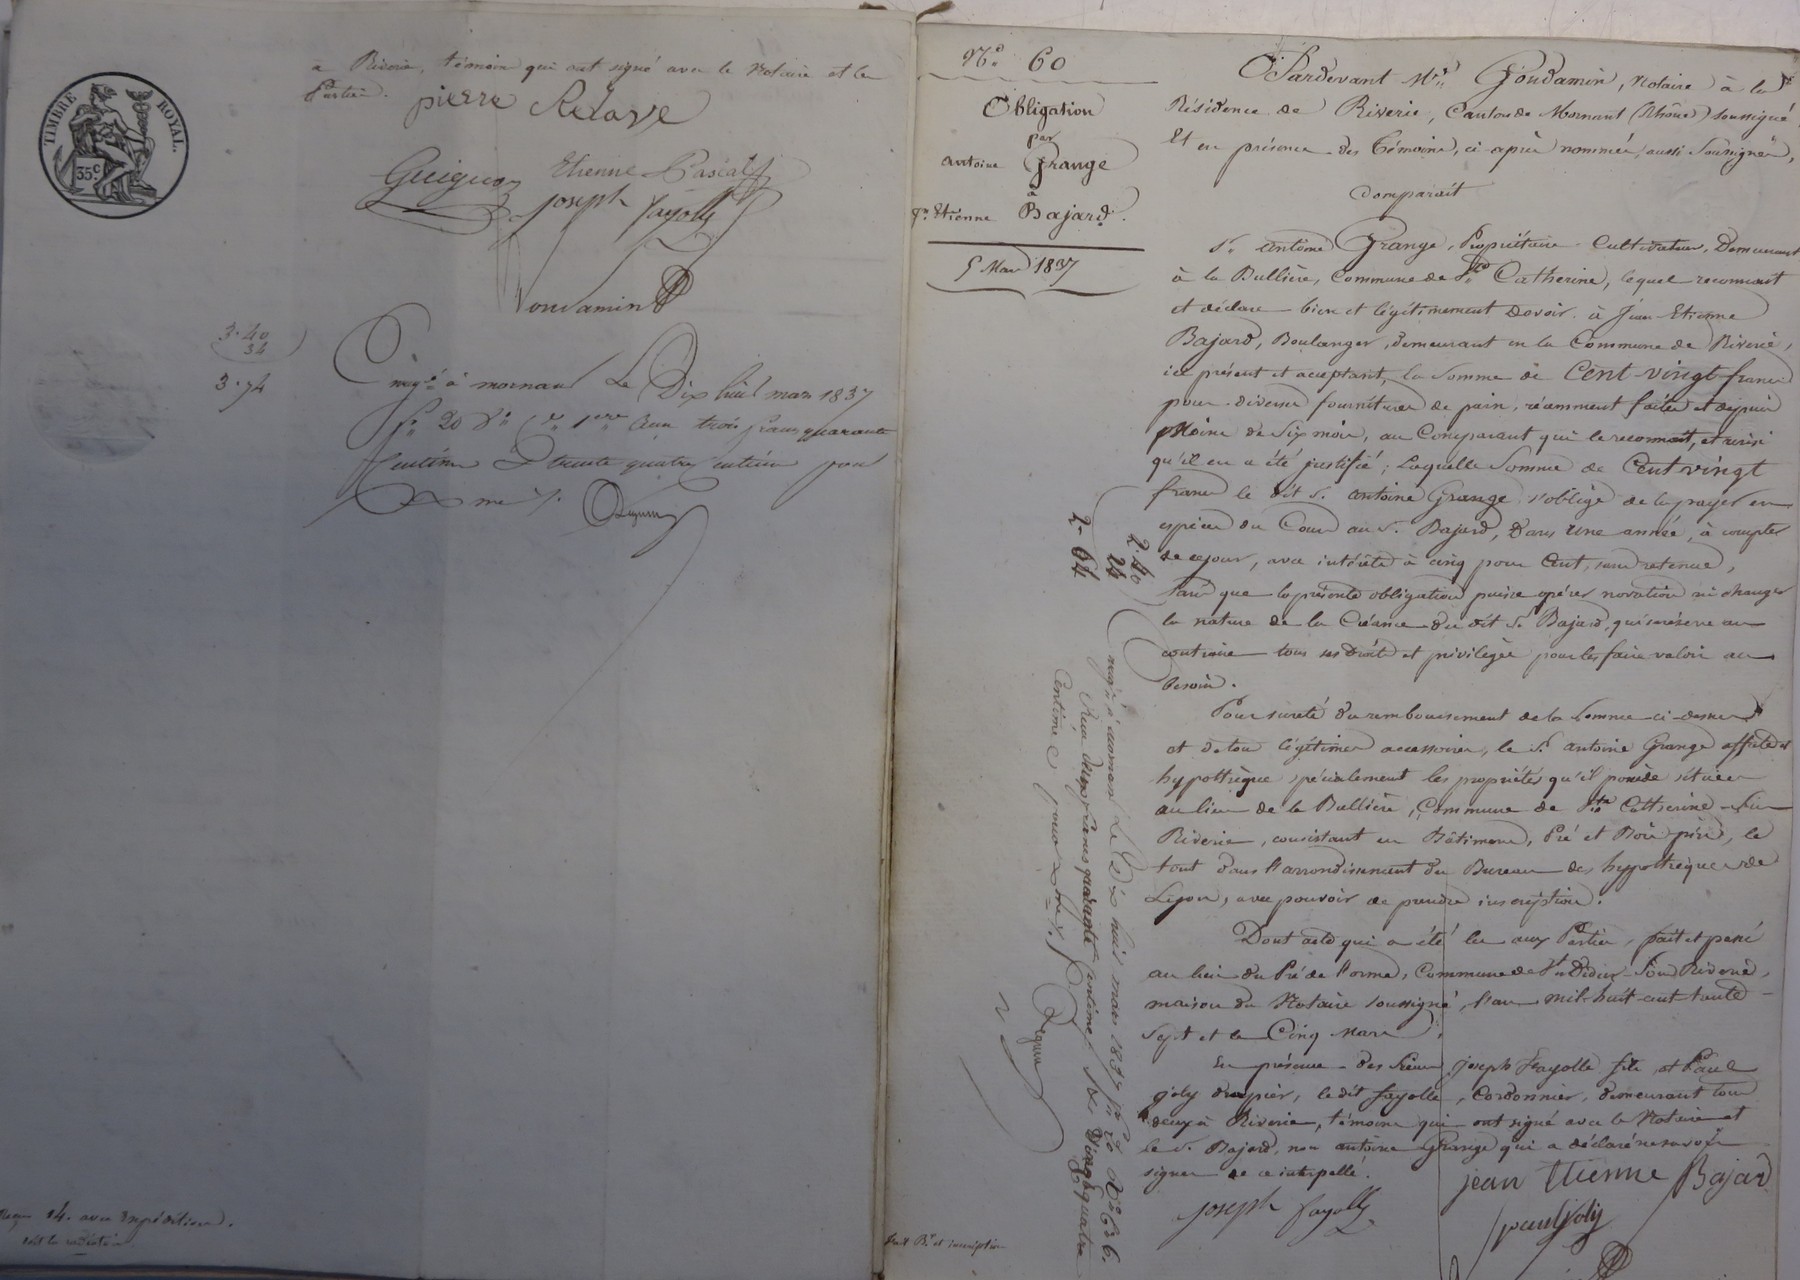 à Riverie, témoins qui ont signé avec le Notaire et les
Parties.
pierre Relave
TIMBRE ROYAL.
35 c.
Guignon Etienne Pascal
joseph fayolle
3.40
34
3.74
mars 1837
trois francs quarante
centimes & trente quatre centimes pour
avec Expédition.
N.° 60
Obligation
par
antoine Grange
à
Etienne Bajard.
5 Mars 1837
Pardevant M.e Goudamin, Notaire à la
Résidence de Riverie, Canton de Mornant (Rhône) soussigné,
Et en présence des Témoins, ci-après nommés, aussi Soussignés,
Comparait
S.r antoine Grange, Propriétaire Cultivateur, Demeurant
à la Bullière, Commune de S.te Catherine, lequel reconnait
et déclare bien et légitimement devoir à Jean Etienne
Bajard, Boulanger, demeurant en la Commune de Riverie,
ici présent et acceptant, la Somme de Cent-vingt francs
pour diverses fournitures de pain, récemment faites et depuis
Moins de Six mois, au Comparant qui le reconnait, et ainsi
qu'il en a été justifié; Laquelle Somme de Cent vingt
francs le dit S.r antoine Grange s'oblige de la payer en
espèces du Cours au S.r Bajard, Dans une année, à compter
de ce jour, avec intérêts à cinq pour Cent, sans retenue,
Sans que la présente obligation puisse opérer novation ni changer
la nature de la Créance du dit S.r Bajard, qui se réserve au
contraire tous ses droits et privilèges pour les faire valoir au
besoin.
Pour sureté du remboursement de la Somme ci-dessus
et de tous légitimes accessoires, le S.r antoine Grange affecte et
hypothèque spécialement les propriétés qu'il possède situées
au lieu de la Bullière, Commune de S.te Catherine-sur
Riverie, consistant en Bâtimens, Pré et Bois pins, le
tout dans l'arrondissement du Bureau des hypothèques de
Lyon, avec pouvoir de prendre inscription.
Dont acte qui a été lu aux Parties, fait et passé
au lieu du Pré de l'orme, Commune de S.t Didier-Sous Riverie,
maison du Notaire soussigné, l'an mil-huit-cent trente-
Sept et le Cinq Mars.
En présence des Sieurs joseph Fayolle fils, et Paul
joly drapier, le dit fayolle, Cordonnier, demeurant tous
deux à Riverie, témoins qui ont signé avec le Notaire et
le S.r Bajard, non antoine Grange qui a déclaré ne savoir
signer de ce interpellé.
jean Etienne Bajard
joseph fayolle
paul joly
2.40
24
2.64
Le Dix huit mars 1837
deux francs quarante centimes & vingt quatre
Centimes pour
et inscription